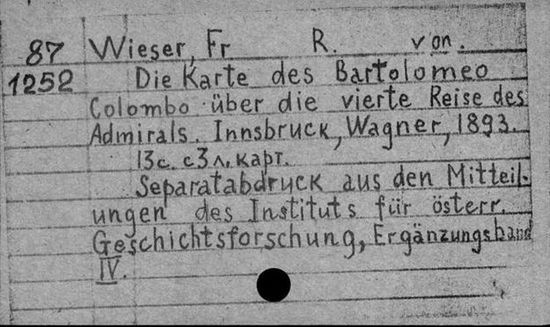 87 Wieser, Fr R. von.
1252 Die Karte des Bartolomeo
Colombo über die vierte Reise des
Admirals. Innsbruck, Wagner, 1893.
13с. с 3 л. карт.
Separatabdruck aus den Mitteil-
ungen des Instituts für österr.
Geschichtsforschung, Ergänzungsband
IV.